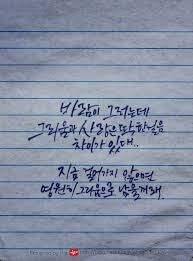 바람이 그러는데
그리움과 사랑은 딱 한걸음
차이가 있대..
지금 걸어가지 않으면
영원히 그리움으로 남을거래.